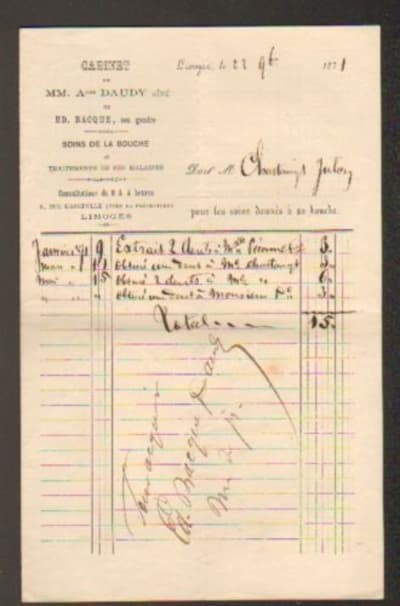 CABINET
DE
MM. Ate DAUDY aîné
ET
ED. BACQUE, son gendre
SOINS DE LA BOUCHE
et
TRAITEMENTS DE SES MALADIES
Consultations de 8 à 4 heures
LIMOGES
Limoges, le 22 9b 1871
Doit M. Chastaingt Julon
pour les soins donnés à sa bouche.
Janvier 71 9 Extrait 2 dents à Mme 3.
mars 11 Obturé un dent à Me Chastaingt 3.
mai 15 Obturé 2 dents à Me " 6.
" " Obturé un dent à Monsieur Do 3.
Total 15.
Pour acquit
Ed. Bacque